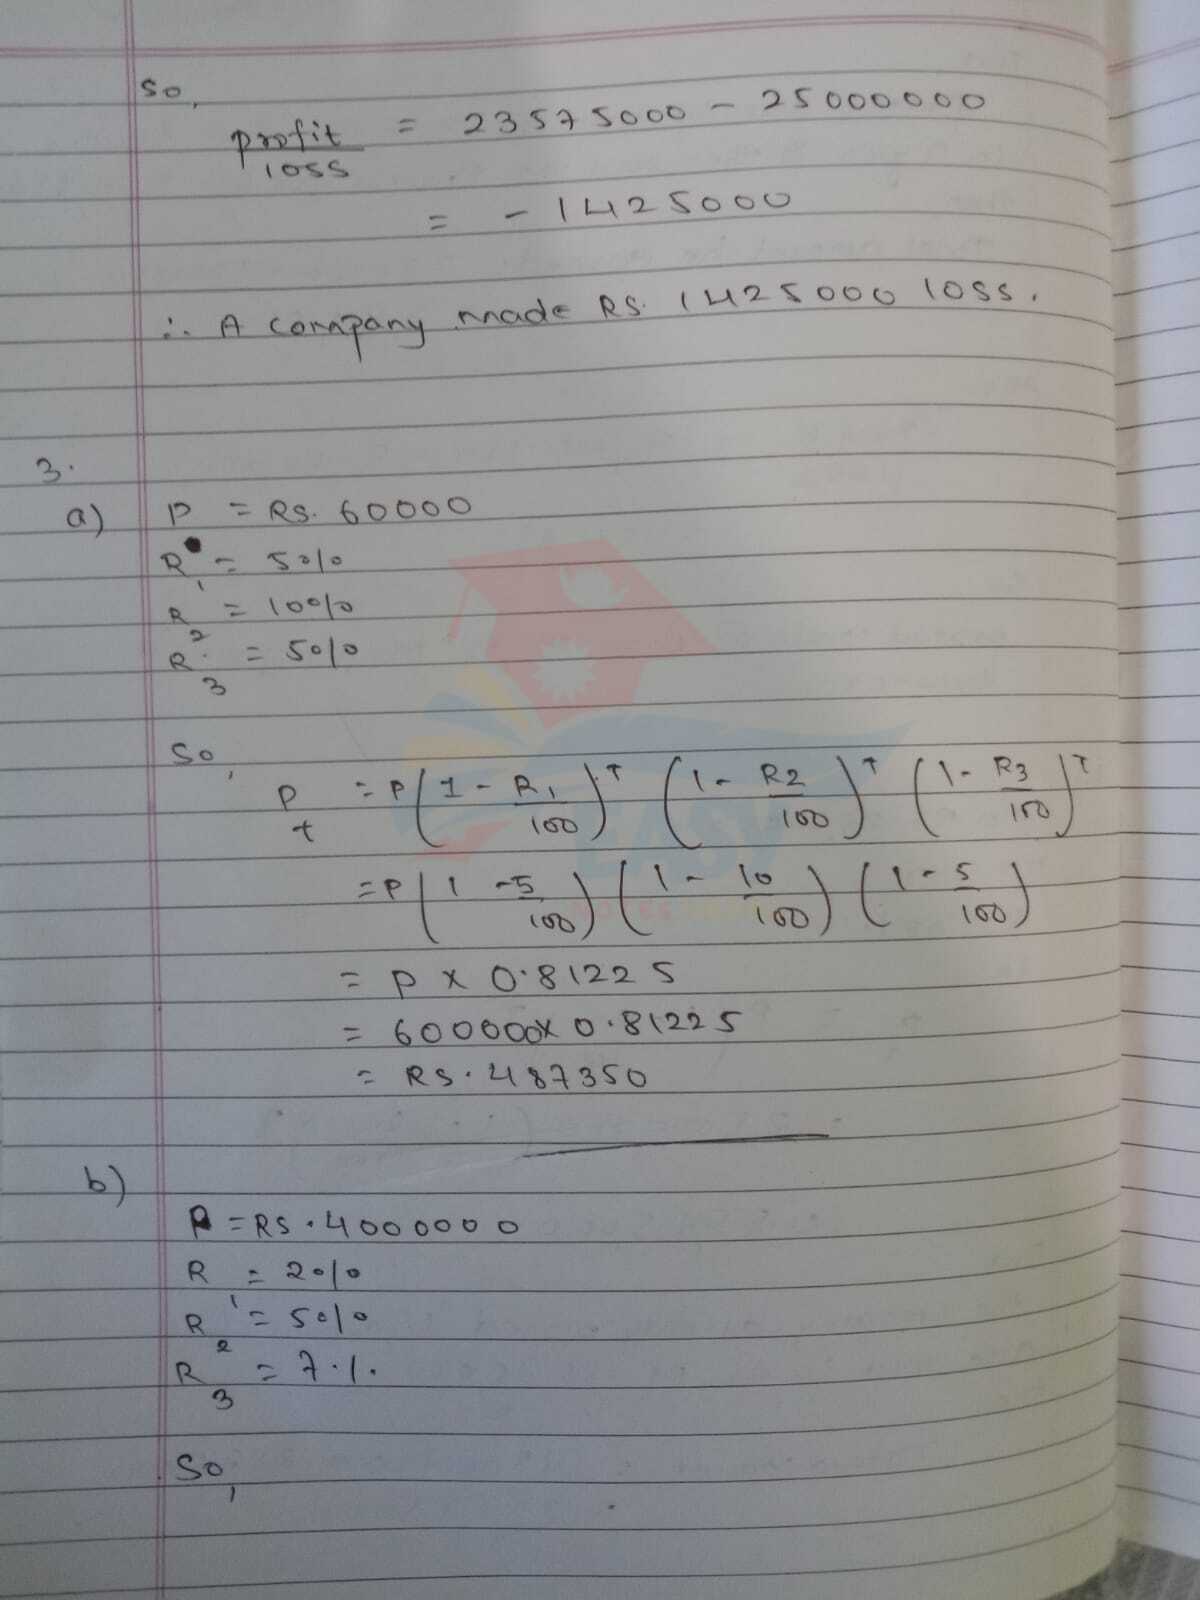 So,
profit/loss = 23575000 - 25000000
= - 1425000
∴ A company made Rs. 1425000 loss.
3.
a) P = Rs. 60000
R1 = 5%
R2 = 10%
R3 = 5%
So,
Pt = P(1 - R1/100)^T (1 - R2/100)^T (1 - R3/100)^T
= P(1 - 5/100) (1 - 10/100) (1 - 5/100)
EASY
NOTES
= P x 0.81225
= 600000 x 0.81225
= Rs. 487350
b)
P = Rs. 4000000
R1 = 2%
R2 = 5%
R3 = 7%.
So,